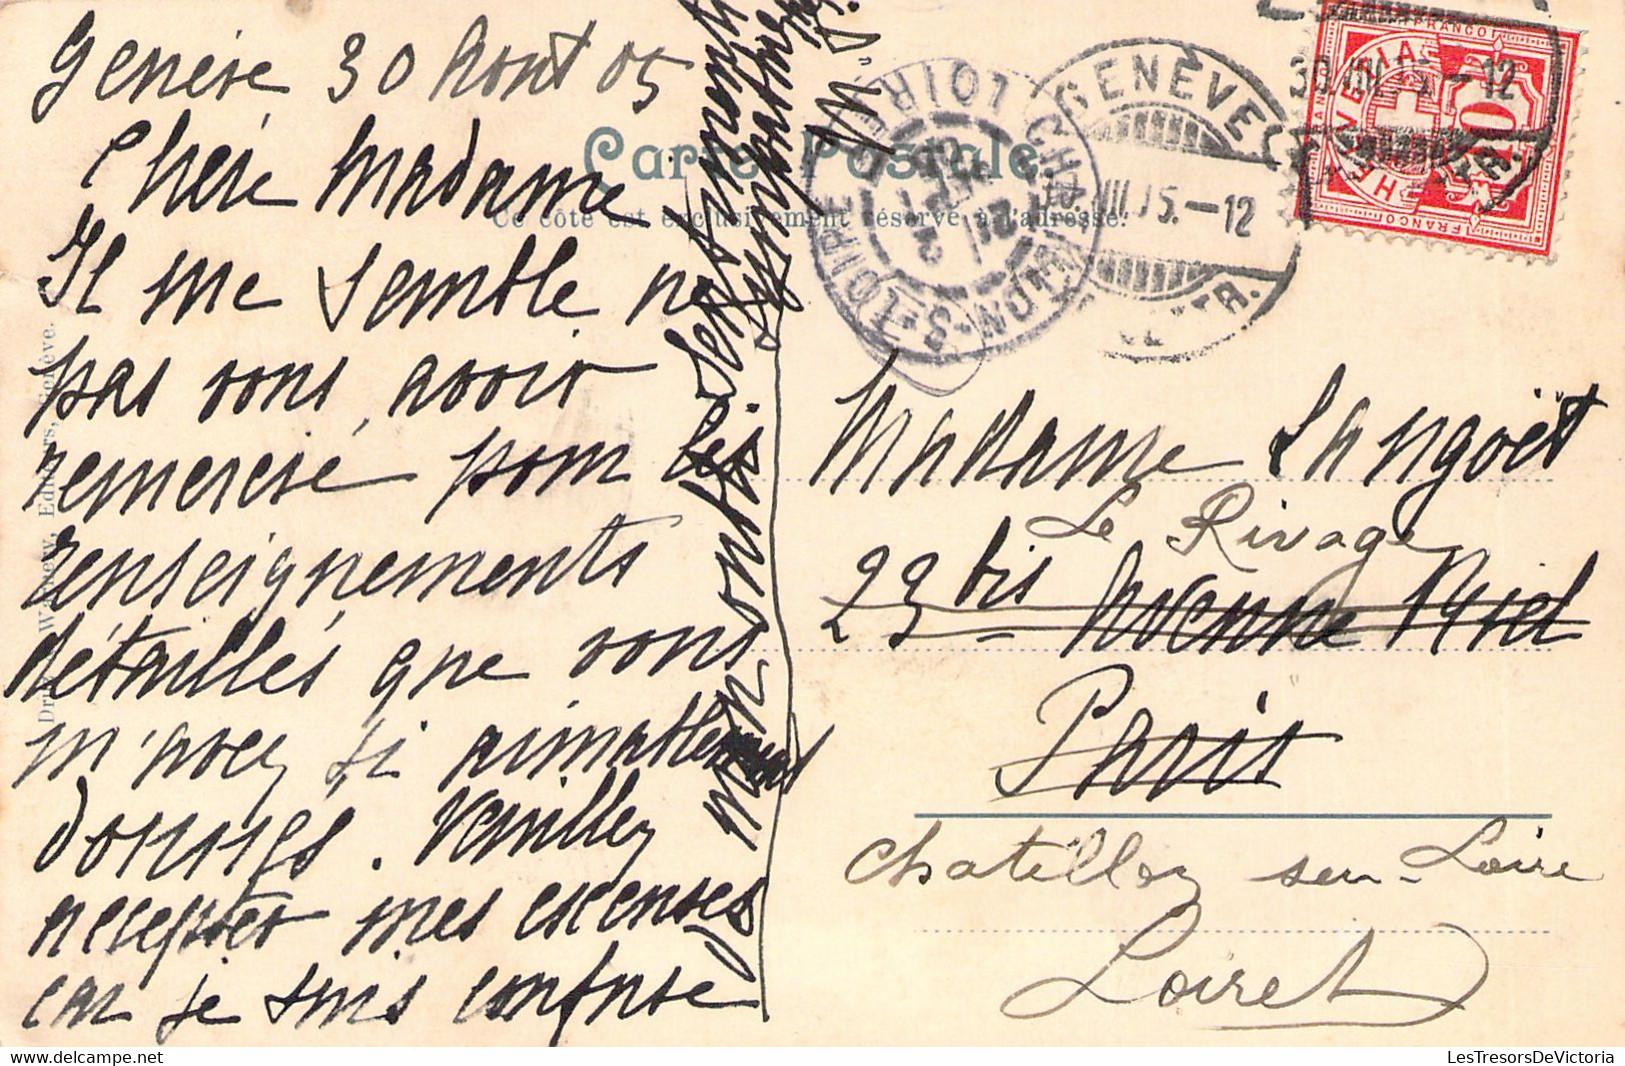 Genève 30 Aout 05
Chère Madame
Il me semble ne
pas vous avoir
remercié pour les
renseignements
détaillés que vous
m'avez si aimablement
donnés. Veuillez
accepter mes excuses
car je suis confuse
de mon oubli.
Sentiments
sympathiques
M. S.
Carte Postale.
Ce côté est exclusivement réservé à l'adresse.
GENÈVE
VIII.05.-12
30.VIII.05.-12
CHATILLON-S-LOIRE
LOIRET
HELVETIA
FRANCO
10
Madame Langoët
Le Rivage
23 bis Avenue Niel
Paris
Chatillon sur-Loire
Loiret
Editeurs, Genève.
LesTresorsDeVictoria